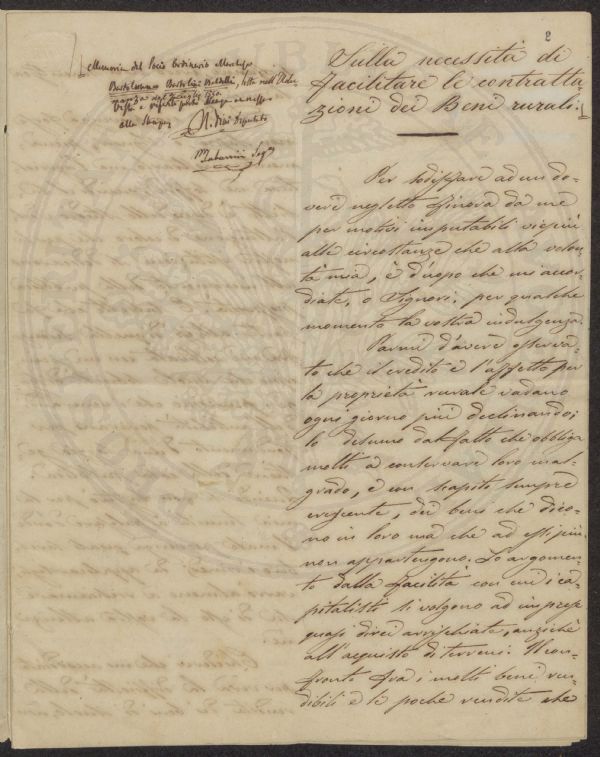 2
Memoria del Socio Ordinario Marchese
Bartolommeo Bartolini Baldelli, letta nell'Adu-
nanza del
alla Stampa
Segr.
Sulla necessità di
facilitare le contratta-
zioni dei Beni rurali.
Per sodisfare ad un do-
vere negletto finora da me
per motivi imputabili viepiù
alle circostanze che alla volon-
tà mia, è d'uopo che mi accor-
diate, o Signori, per qualche
momento la vostra indulgenza.
Parmi d'avere osserva-
to che il credito e l'affetto per
la proprietà rurale vadano
ogni giorno più declinando;
lo desumo dal fatto che obbliga
molti a conservare loro mal-
grado, e con scapito sempre
crescente, dei beni che dico-
no in loro ma che ad essi più
non appartengono. Lo argomen-
to dalla facilità con cui i ca-
pitalisti si volgono ad imprese
quasi direi arrischiate, anziché
all'acquisto di terreni. Il con-
fronto fra i molti beni ven-
dibili e le poche vendite che